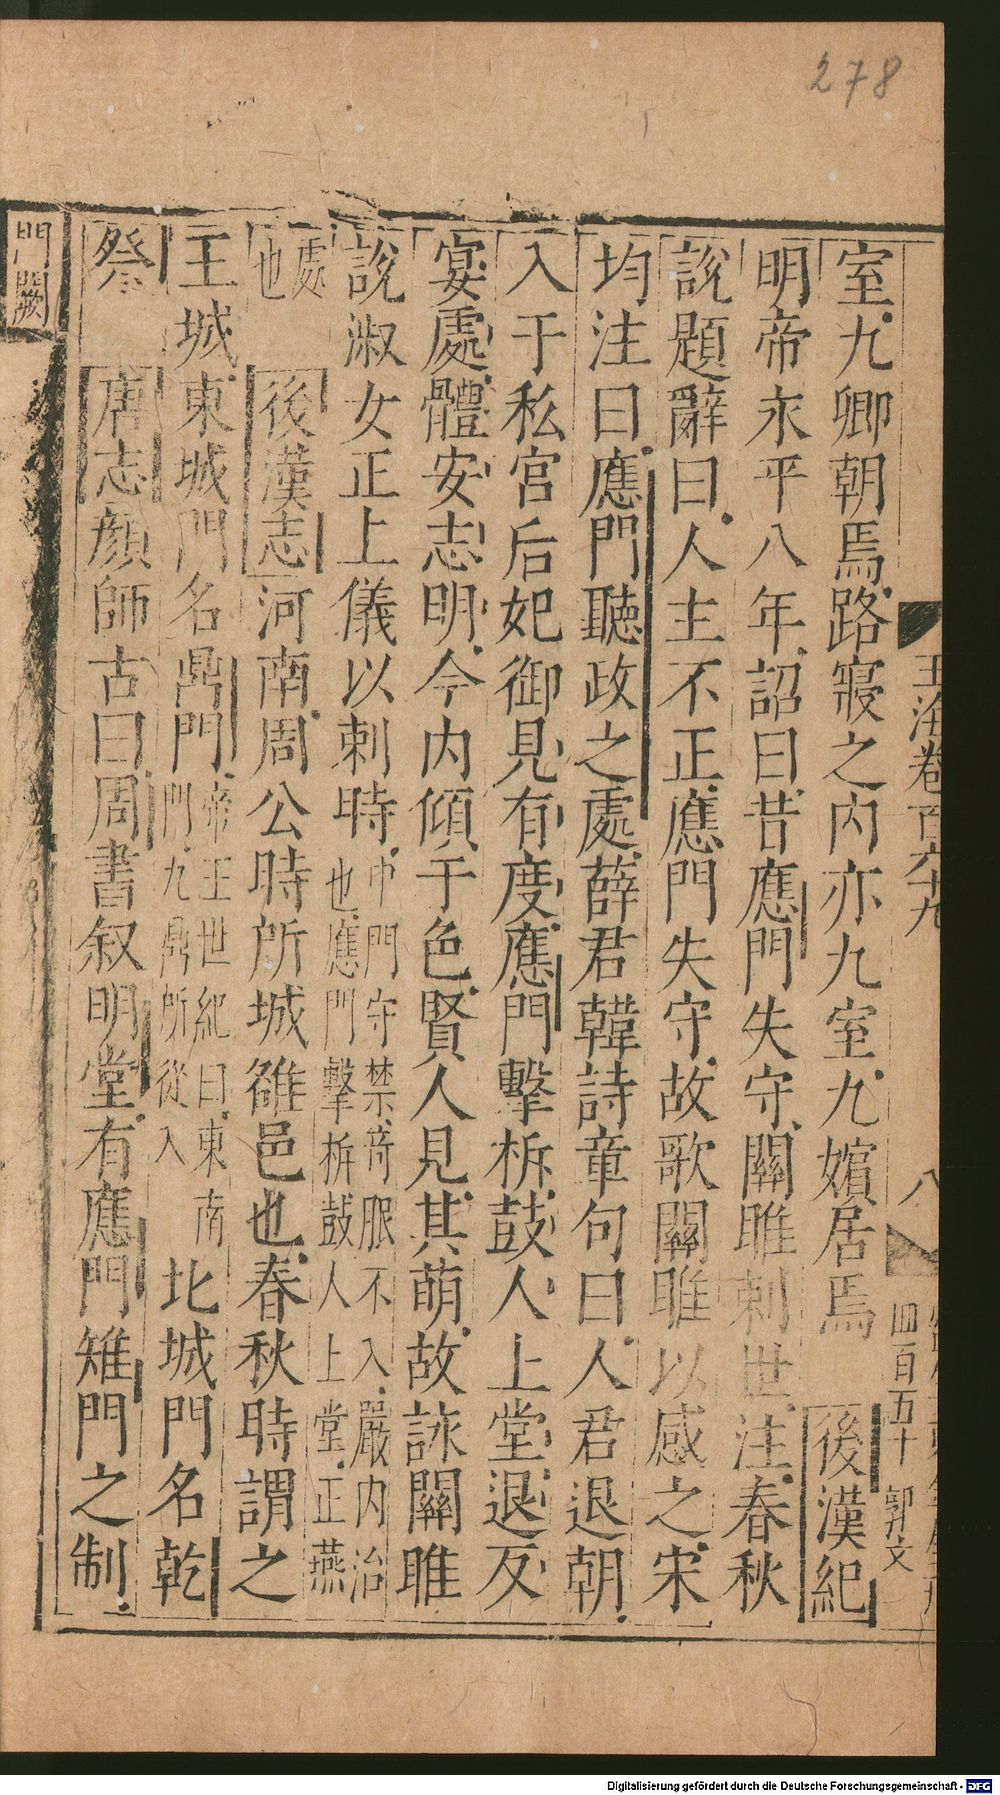 278
玉海卷百六十九
八
四百五十 郭文
室九卿朝焉路寢之内亦九室九嬪居焉 後漢紀
明帝永平八年詔曰昔應門失守關雎刺世注春秋
說題辭曰人主不正應門失守故歌關雎以感之宋
均注曰應門聽政之處薛君韓詩章句曰人君退朝
入于私宮后妃御見有度應門擊柝鼓人上堂退反
宴處體安志明今内傾于色賢人見其萌故詠關雎
說淑女正上儀以刺時 中門守禁竒服不入嚴内治
也應門擊柝鼓人上堂正燕
處
也 後漢志河南周公時所城雒邑也春秋時謂之
王城東城門名鼎門 帝王世紀曰東南
門九鼎所從入 北城門名乾
祭 唐志顏師古曰周書叙明堂有應門雉門之制
門闕
Digitalisierung gefördert durch die Deutsche Forschungsgemeinschaft - DFG